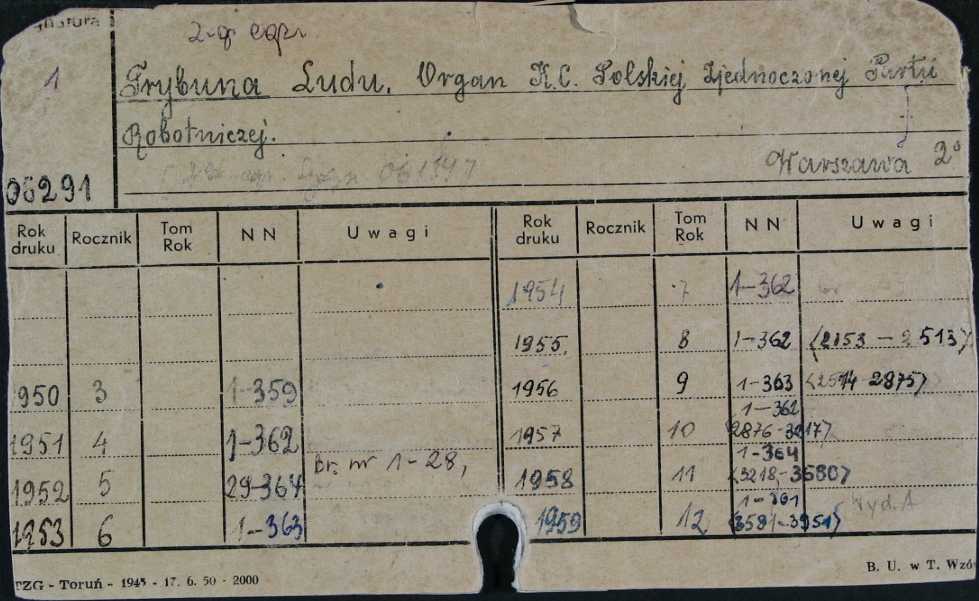 2-gi egz.
1
Trybuna Ludu. Organ K.C. Polskiej Zjednoczonej Partii
Robotniczej.
Warszawa 2°
06291
Rok druku Rocznik Tom Rok NN Uwagi Rok druku Rocznik Tom Rok NN Uwagi
1954 7 1-362
1955. 8 1-362 (2153 - 2513)
950 3 1-359 1956 9 1-363 (2514 2875)
1951 4 1-362 1957 10 1-362 (2876-3217)
1952 5 29-364 br. nr 1-28, 1958 11 1-364 (3218-3580)
1953 6 1-363 1959 12 (3581-3951) Wyd. A
TZG - Toruń - 1945 - 17. 6. 50 - 2000
B. U. w T. Wzó